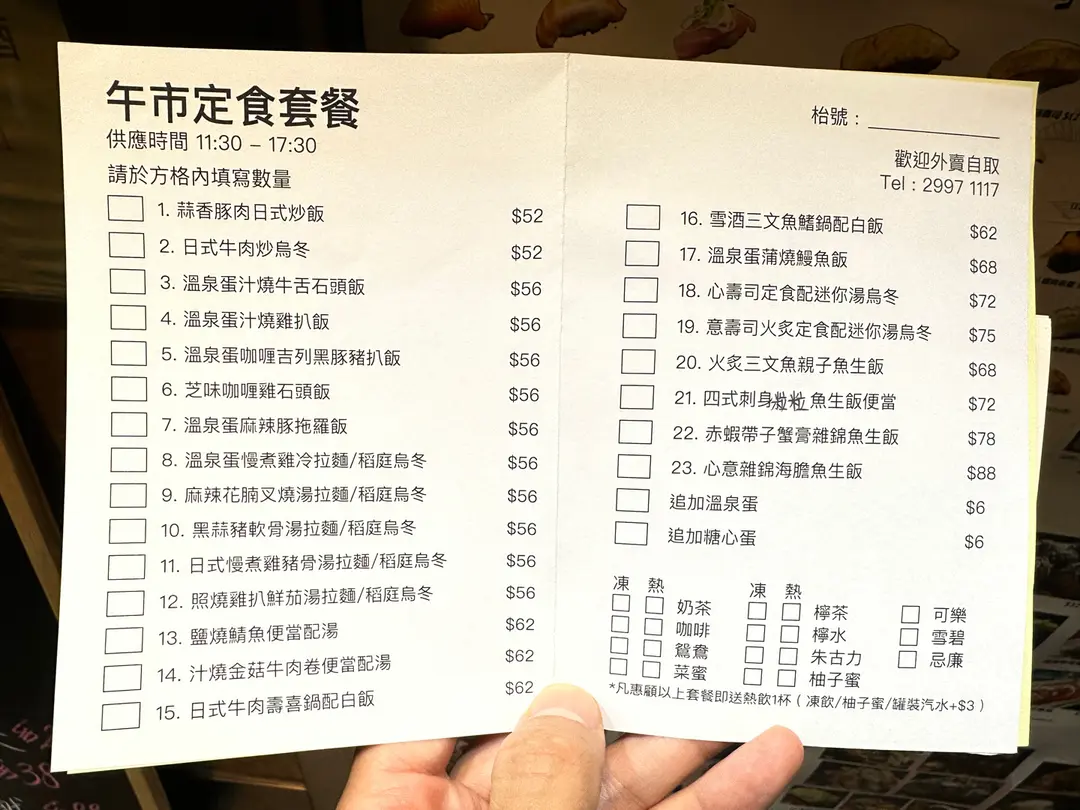 午市定食套餐
供應時間 11:30 – 17:30
請於方格內填寫數量
1. 蒜香豚肉日式炒飯 $52
2. 日式牛肉炒烏冬 $52
3. 溫泉蛋汁燒牛舌石頭飯 $56
4. 溫泉蛋汁燒雞扒飯 $56
5. 溫泉蛋咖喱吉列黑豚豬扒飯 $56
6. 芝味咖喱雞石頭飯 $56
7. 溫泉蛋麻辣豚拖羅飯 $56
8. 溫泉蛋慢煮雞冷拉麵/稻庭烏冬 $56
9. 麻辣花腩叉燒湯拉麵/稻庭烏冬 $56
10. 黑蒜豬軟骨湯拉麵/稻庭烏冬 $56
11. 日式慢煮雞豬骨湯拉麵/稻庭烏冬 $56
12. 照燒雞扒鮮茄湯拉麵/稻庭烏冬 $56
13. 鹽燒鯖魚便當配湯 $62
14. 汁燒金菇牛肉卷便當配湯 $62
15. 日式牛肉壽喜鍋配白飯 $62
枱號：
歡迎外賣自取
Tel : 2997 1117
16. 雪酒三文魚鰭鍋配白飯 $62
17. 溫泉蛋蒲燒鰻魚飯 $68
18. 心壽司定食配迷你湯烏冬 $72
19. 意壽司火炙定食配迷你湯烏冬 $75
20. 火炙三文魚親子魚生飯 $68
21. 四式刺身粒粒魚生飯便當 $72
22. 赤蝦帶子蟹膏雜錦魚生飯 $78
23. 心意雜錦海膽魚生飯 $88
追加溫泉蛋 $6
追加糖心蛋 $6
凍 熱 凍 熱
奶茶 檸茶 可樂
咖啡 檸水 雪碧
鴛鴦 朱古力 忌廉
菜蜜 柚子蜜
*凡惠顧以上套餐即送熱飲1杯（凍飲/柚子蜜/罐裝汽水+$3）